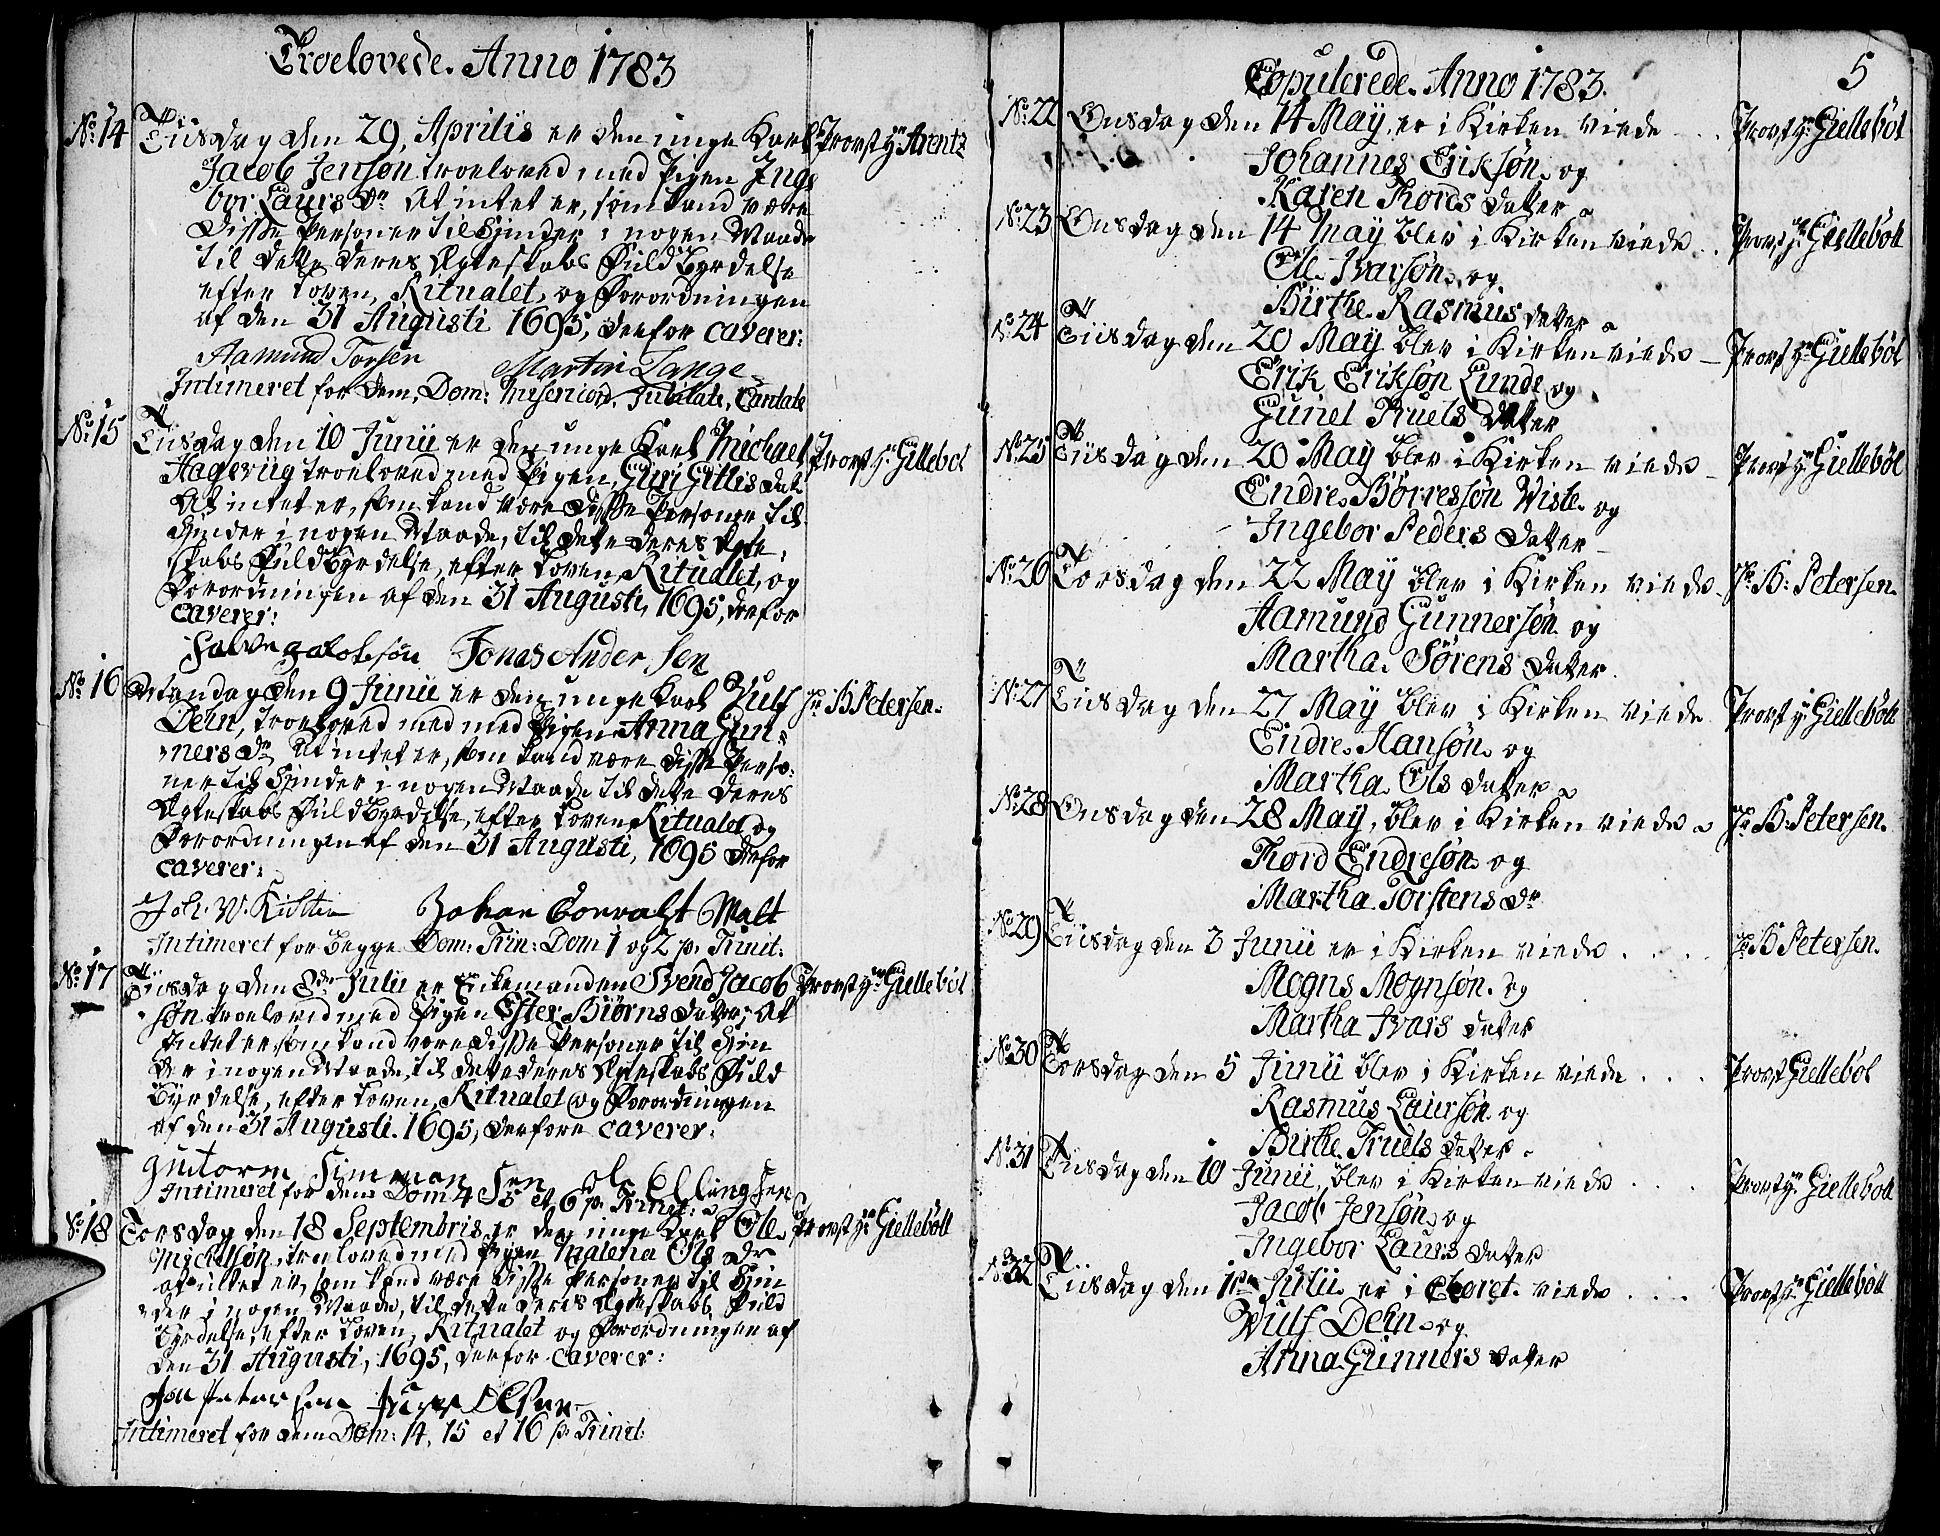 Troelovede. Anno 1783
No: 14 Tiisdag den 29, Aprilis er den unge Karl Provst Hr Arentz
Jacob Jensøn troeloved med Pigen Inge
bor Laurs Dr. At intet er, som kand være
Disse Personer til Hinder i nogen Maade
til dette deres Ægteskabs Fuldbyrdelse
efter Loven, Ritualet, og Forordningen
af den 31 Augusti 1695, derfor caverer:
Aamund Torsen Martin Lange
Intimeret for dem, Dom: Misericord. Jubilate, Cantate
No: 15 Tiisdag den 10 Junii er den unge Karl Michael Provst Hr Gillebøl
Hagerüg troeloved med Pigen, Guri Gitlis Dat.
At intet er, som kand være Disse Personer til
Hinder i nogen Maade, til dette deres Ægte,
skabs Fuldbyrdelse, efter Loven, Ritualet, og
Forordningen af den 31 Augusti, 1695, derfor
caverer:
Salve Jakobsøn Jonas Andersen
No: 16 Mandag den 9 Junii er den unge Karl Vulf Hr: B Petersen.
Dehn, troeloved med med Pigen Anna Gun-
ners Dr. At intet er, som kand være Disse Perso-
ner til Hinder i nogen Maade til dette deres
Ægteskabs Fuldbyrdelse, efter Loven Ritualet og
Forordningen af den 31 Augusti, 1695 derfor
caverer:
Joh. W. Johan Conraht Malt
Intimeret for begge Dom: Trin: Dom 1 og 2 p. Trinit:
No: 17 Tiisdag den 8de Julii er Enkemanden Svend Jacob Provst Hr Giellebøl
søn troelovet med Pigen Ester Biørns Datter, At
Intet er som kand være Disse Personer til Hin
der i nogen Maade, til dette deres Ægteskabs Fuld
byrdelse, efter Loven, Ritualet og Forordningen
af den 31 Augusti. 1695, derfore caverer:
guttorm Simmonsen ole Ellingsen
Intimeret for dem Dom 4 5 et 6 p. Trinit:
No: 18 Torsdag den 18 Septembris er den unge Karl Ole Provst Hr Giellebøll
Mickelsøn, troeloved med Pigen Malena Ols Dr
at intet er, som kand være Disse Personer til Hin
der i nogen Maade, til dette deres Ægteskabs Fuld
byrdelse, efter Loven, Ritualet og Forordningen af
den 31 Augusti, 1695, derfor caverer:
Jon Petersen Olsen
Intimeret for dem Dom: 14, 15 et 16 p. Trinit:
Copulerede. Anno 1783. 5
No: 22 Onsdag den 14 May, er i Kirken viede . . . Provst Hr Giellebøl
Johannes Eriksøn, og
Karen Thords Datter
No: 23 Onsdag den 14 May blev i Kirken viede . . Provst Hr Giellebøll
Ole Ivarsøn, og
Birthe Rasmus Datter
No: 24 Tiisdag den 20 May blev i Kirken viede Provst Hr Giellebøl
Erik Eriksøn Lunde og
Gunel Truels Datter
No: 25 Tiisdag den 20 May blev i Kirken viede Provst Hr Giellebøl
Endre Børressøn Viste og
Ingebor Peders Datter
No: 26 Torsdag den 22 May blev i Kirken viede Hr: B: Petersen.
Aamund Gunnersøn og
Martha Sørens Datter.
No: 27 Tiisdag den 27 May blev i Kirken viede Provst Hr Giellebøll
Endre Hansøn og
Martha Ols Datter
No: 28 Onsdag den 28 May, blev i Kirken viede Hr B: Petersen.
Thord Endresøn og
Martha Torstens Dr
No: 29 Tiisdag den 3 Junii er i Kirken viede . . . . Hr B Petersen.
Mogns Mognsøn og
Martha Ivars Datter
No: 30 Torsdag den 5 Junii blev i Kirken viede . . . Provst Giellebøl
Rasmus Laursøn og
Birthe Truels Datter
No: 31 Tiisdag den 10 Junii, blev i Kirken viede . . . . Provst Hr Giellebøll
Jacob Jensøn og
Ingebor Laurs Datter
No: 32 Tiisdag den 1ste Julii er i Choret viede . . . . Provst Hr Giellebøll
Wulf Dehn og
Anna Gunners Datter